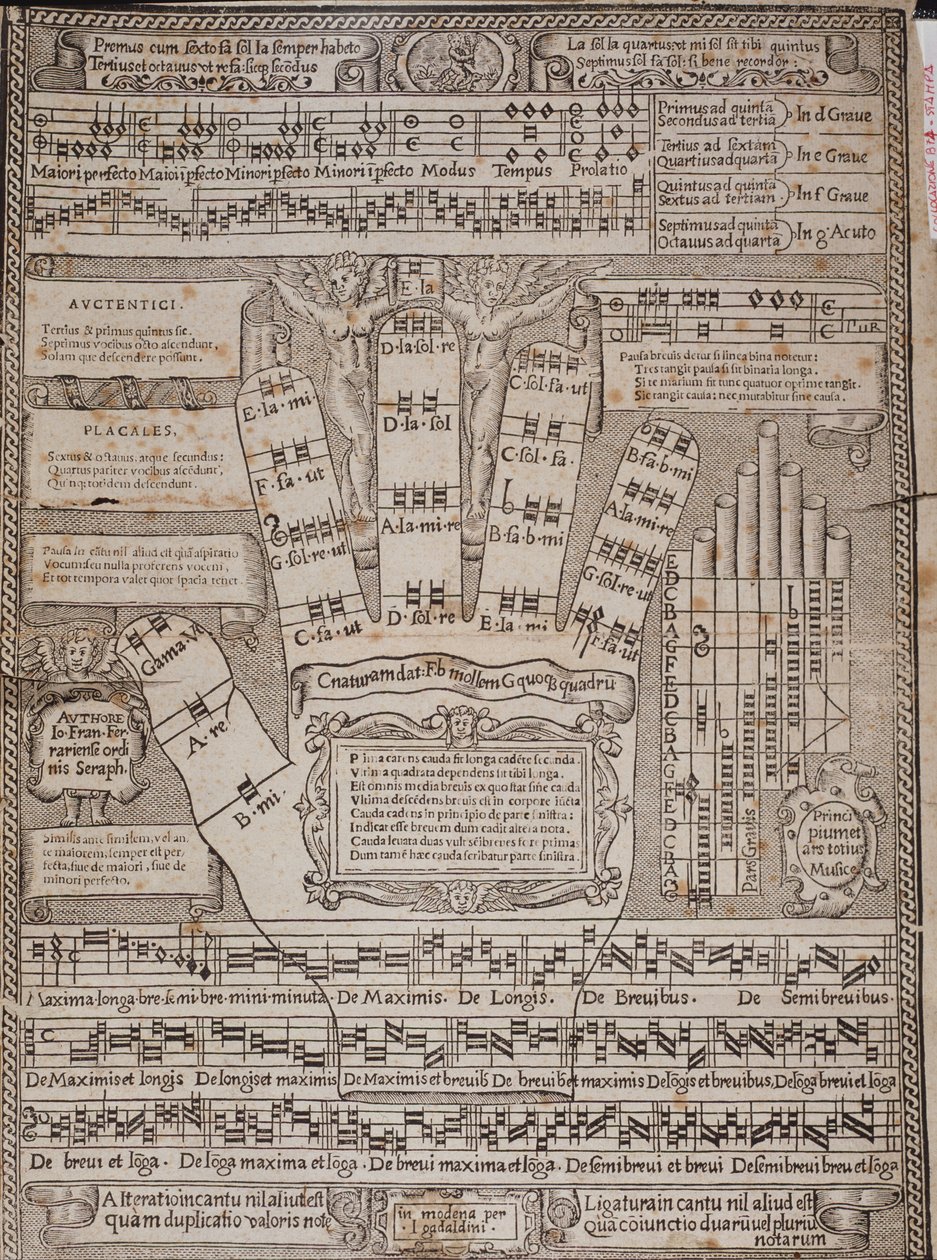 Premus cum sexto fa sol la semper habeto
Tertius et octauus vt re fa: sicq3 secōdus
La sol la quartus: vt mi sol sit tibi quintus
Septimus sol fa sol: si bene recordor:
Maiori perfecto Maiori īpfecto Minori pfecto Minori īpfecto Modus Tempus Prolatio
Primus ad quintā
Secondus ad tertiā
In d Graue
Tertius ad Sextam
Quartius ad quartā
In e Graue
Quintus ad quintā
Sextus ad tertiam
In f Graue
Septimus ad quintā
Octauus ad quartā
In g Acuto
AVCTENTICI.
Tertius & primus quintus sic.
Septimus vocibus octo ascendunt,
Solam que descendere possunt.
PLACALES,
Sextus & octauus, atque secundus:
Quartus pariter vocibus ascēdunt,
Qu nq; totidem descendunt.
Pausa in cātu nil aliud est quā aspiratio
Vocum seu nulla proferens vocem,
Et tot tempora valet quot spacia tenet.
Pausa breuis detur si linea bina notetur:
Tres tangit pausa si sit binaria longa.
Si te marium sit tunc quatuor optime tangit.
Sic tangit causa: nec mutabitur sine causa.
E la
D·la·sol·re
D·la·sol
A·la·mi·re
D·sol·re
E·la·mi·
F·fa·ut
G·sol·re·ut
C·fa·ut
C·sol·fa·ut
C·sol·fa·
B·fa·b·mi
E·la·mi
B·fa·b·mi
A·la·mi·re
G·sol·re·ut
F·fa·ut
Gama·Vt
A·re
B·mi·
C naturam dat: F. b mollem G quoq3 B quadrū
AVTHORE
Io·Fran·Fer-
rariense ordi
nis Seraph.
Prima carens cauda sit longa cadēte secunda.
Vltima quadrata dependens sit tibi longa.
Est omnis media breuis ex quo stat sine cauda
Vltima descēdens breuis est in corpore iūcta
Cauda cadens in principio de parte sinistra:
Indicat esse breuem dum cadit altera nota.
Cauda leuata duas vult sēibreues fore primas
Dum tamē hæc cauda scribatur parte sinistra.
Similis ante similem, vel an
te maiorem, semper est per
fecta, siue de maiori, siue de
minori perfecto.
E
D
C
B
A
G
F
E
D
C
B
A
G
F
E
D
C
B
A
G
Pars Grauis
Princi
pium et
ars totius
Musice
Maxima·longa·bre·semi bre·mini·minuta· De Maximis. De Longis. De Breuibus. De Semibreuibus.
De Maximis et longis De longis et maximis De Maximis et breuib3 De breuib3 et maximis De lōgis et breuibus, De lōga breui et lōga
De breui et lōga. De lōga maxima et lōga. De breui maxima et lōga. De semibreui et breui De semibreui breu et lōga
Alteratio in cantu nil aliud est
quàm duplicatio valoris note
in modena per
I gadaldini.
Ligatura in cantu nil aliud est
Quā cōiunctio duarū vel pluriū
notarum